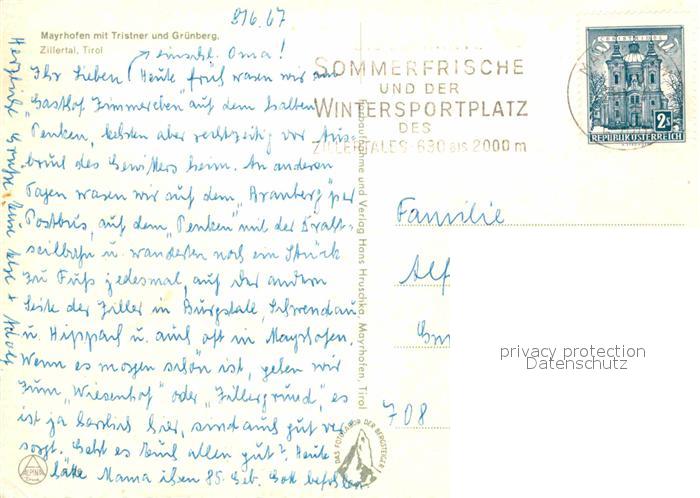 9/6.67
Mayrhofen mit Tristner und Grünberg,
Zillertal, Tirol
einschl. Oma!
Ihr Lieben! Heute früh waren wir am
Gasthof Zimmereben" auf dem halben
Penken, kehrten aber rechtzeitig vor Aus-
bruch des Gewitters heim. An anderen
Tagen waren wir auf dem „Brandberg" per
Postbus, auf dem „Penken" mit der
seilbahn u. wanderten noch ein Stück
zu Fuß jedesmal, auf der andern
Seite der Ziller in Burgstall, Schwendau
u. Hippach u. auch oft in Mayrhofen.
Wenn es morgen schön ist, gehen wir
zum „Wiesenhof" oder „Zillergrund", es
ist ja herrlich hier, sind auch gut ver-
sorgt. Geht es Euch allen gut? Heute
hätte Mama ihren 85. Geb. Gott befohlen.
Herzliche Grüße
SOMMERFRISCHE
UND DER
WINTERSPORTPLATZ
DES
ZILLERTALES · 630 BIS 2000 m
CHRISTKINDL
2 S
REPUBLIK ÖSTERREICH
Familie
Alf
708
und Verlag Hans Hruschka, Mayrhofen, Tirol
DAS FOTOLABOR DER BERGSTEIGER
ALPIN
privacy protection
Datenschutz